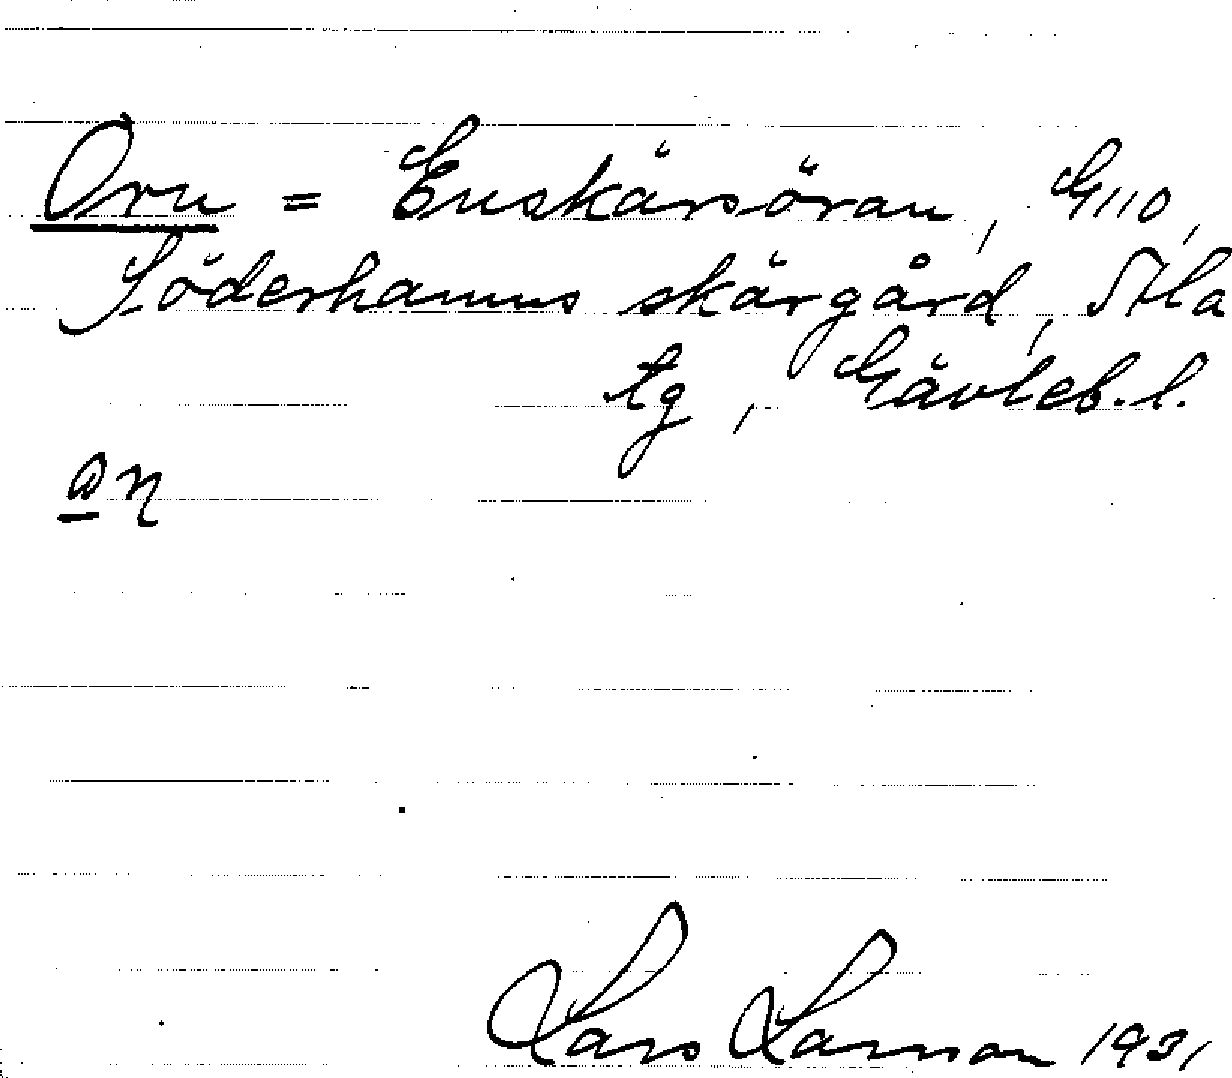 Örn = Enskärsöran, G110,
Söderhamns skärgård, Ala
tg, Gävleb. l.
Lars Larsson 1931